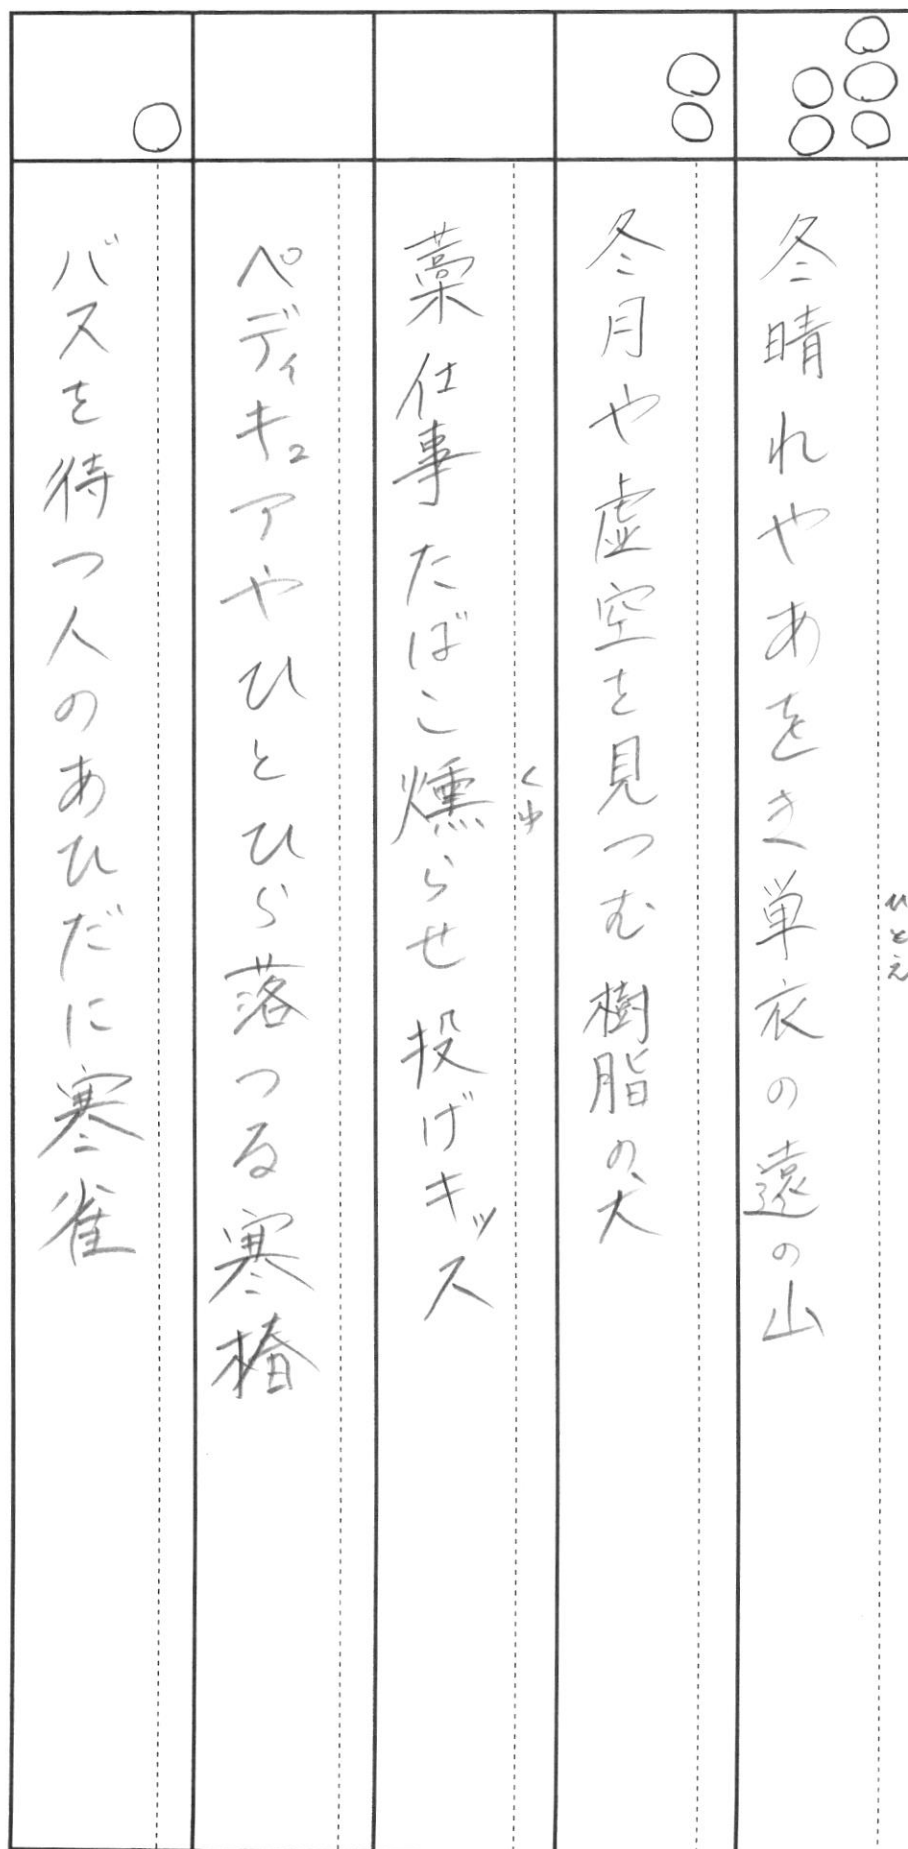 冬晴れやあをき単衣の遠の山
ひとえ
冬月や虚空を見つむ樹脂の犬
藁仕事たばこ燻らせ投げキッス
くゆ
ペディキュアやひとひら落つる寒椿
バスを待つ人のあひだに寒雀